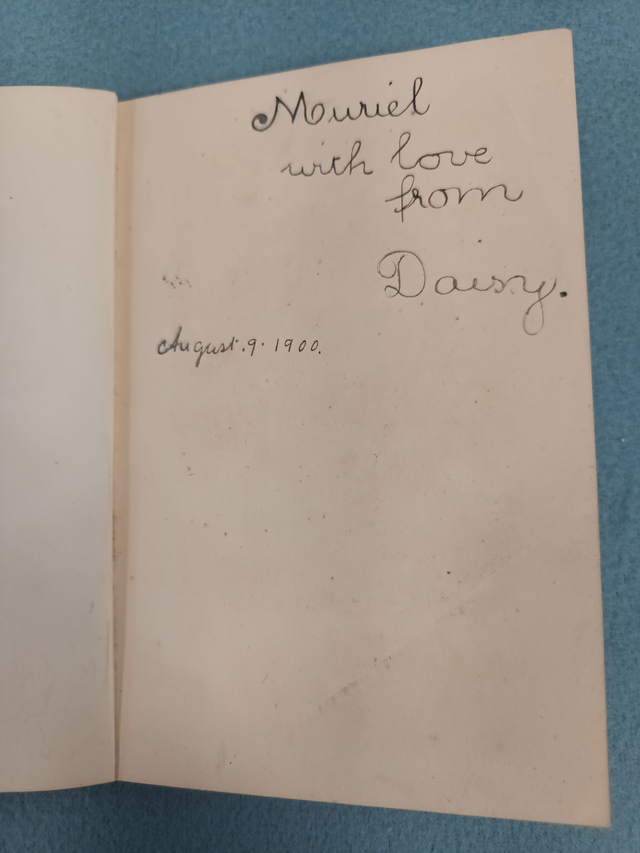 Muriel
with love
from
Daisy.
August.9.1900.